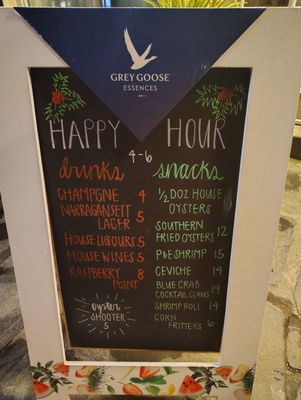 GREY GOOSE
ESSENCES
HAPPY HOUR
4-6
drinks
CHAMPGNE 4
NARRAGANSETT
LAGER 5
HOUSE LIQOURS 5
HOUSE WINES 5
RASPBERRY 8
POINT
oyster
SHOOTER
5
snacks
1/2 DOZ HOUSE
OYSTERS
SOUTHERN
FRIED OYSTERS 12
P&E SHRIMP 15
CEVICHE 14
BLUE CRAB
COCKTAIL CLAWS 14
SHRIMP ROLL 14
CORN
FRITTERS 6